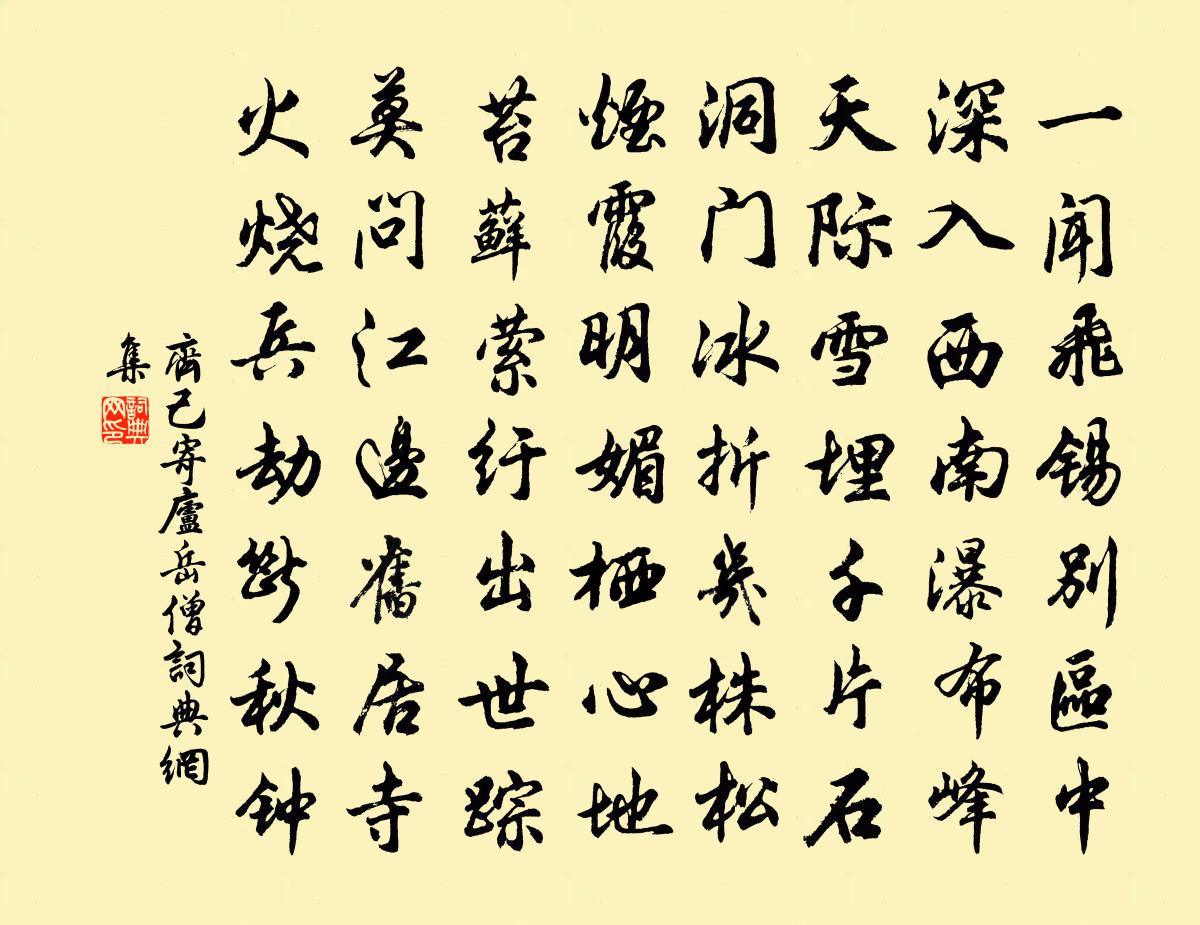 一闻飛锡别區中
深入西南瀑布峰
天际雪埋千片石
洞门冰折幾株松
煙霞明媚栖心地
苔蘚萦纡出世踪
莫问江邊舊居寺
火烧兵劫斷秋钟
齊己寄廬岳僧詞典網
集
詞典
网印